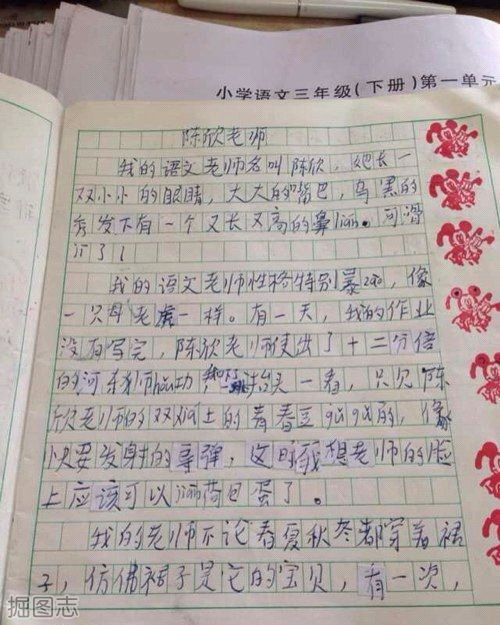 小学语文三年级(下册)第一单元
陈欣老师
我的语文老师名叫陈欣，她长一
双小小的眼睛，大大的嘴巴，乌黑的
秀发下有一个又长又高的鼻liang。可滑
订了！
我的语文老师性格特别暴zao，像
一只母老虎一样。有一天，我的作业
没有写完，陈欣老师使出了十二分倍
的河东狮hou功，我抬头一看，只见陈
欣老师的双jia上的青春豆gugu的，像
快要发射的导弹，这时我想老师的脸
上应该可以jian荷日蛋了。
我的老师不论春夏秋冬都穿着裙
子，仿佛裙子是它的宝贝，有一次，
掘图志